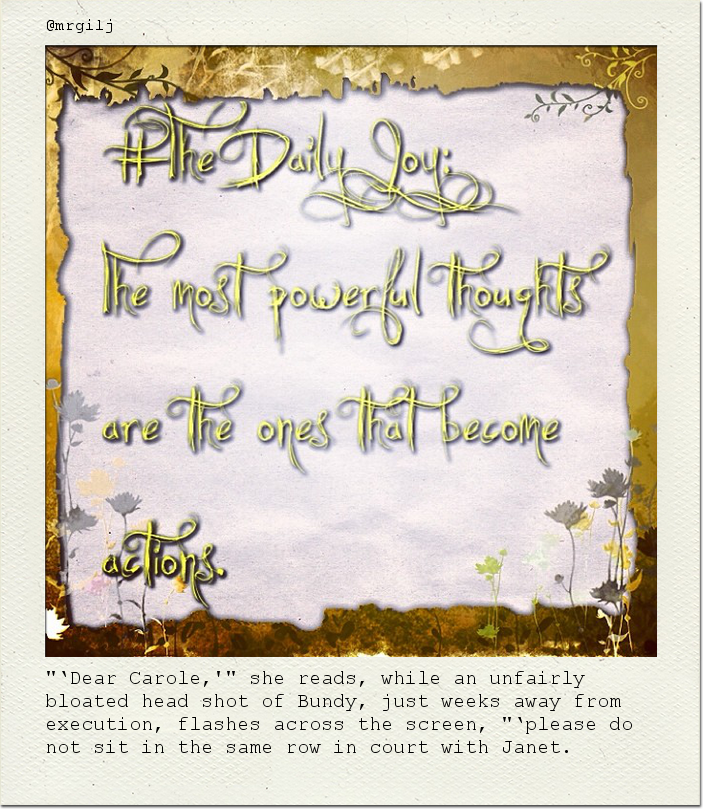 @mrgilj
#The Daily Joy:
The most powerful thoughts
are the ones that become
actions.
"‘Dear Carole,'" she reads, while an unfairly
bloated head shot of Bundy, just weeks away from
execution, flashes across the screen, "‘please do
not sit in the same row in court with Janet.